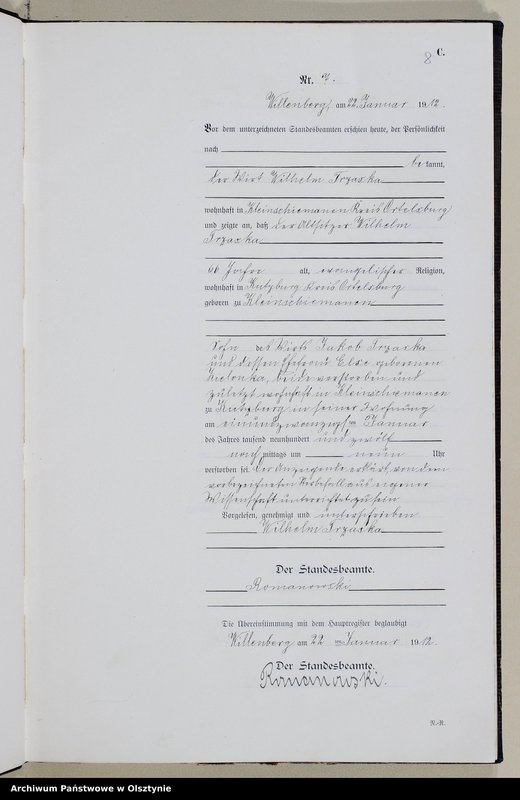 8 C.
Nr. 7.
Willenberg, am 22. Januar 1912.
Vor dem unterzeichneten Standesbeamten erschien heute, der Persönlichkeit
nach
bekannt,
der Wirt Wilhelm Trzaska
wohnhaft in Kleinschiemanen Kreis Ortelsburg
und zeigte an, daß der Altsitzer Wilhelm
Trzaska
66 Jahre alt, evangelischer Religion,
wohnhaft in Kutzburg Kreis Ortelsburg
geboren zu Kleinschiemanen
Sohn des Wirts Jakob Trzaska
und dessen Ehefrau Else geborenen
Zielonka, beide verstorben und
zuletzt wohnhaft in Kleinschiemanen
zu Kutzburg in seiner Wohnung
am einundzwanzigsten Januar
des Jahres tausend neunhundert und zwölf
nachmittags um neun Uhr
verstorben sei. Der Anzeigende erklärt, von dem
vorbezeichneten Sterbefall aus eigener
Wissenschaft unterrichtet zu sein
Vorgelesen, genehmigt und unterschrieben
Wilhelm Trzaska
Der Standesbeamte.
Romanowski
Die Übereinstimmung mit dem Hauptregister beglaubigt
Willenberg am 22 ten Januar 1912.
Der Standesbeamte.
Romanowski.
N.-R.
Archiwum Państwowe w Olsztynie